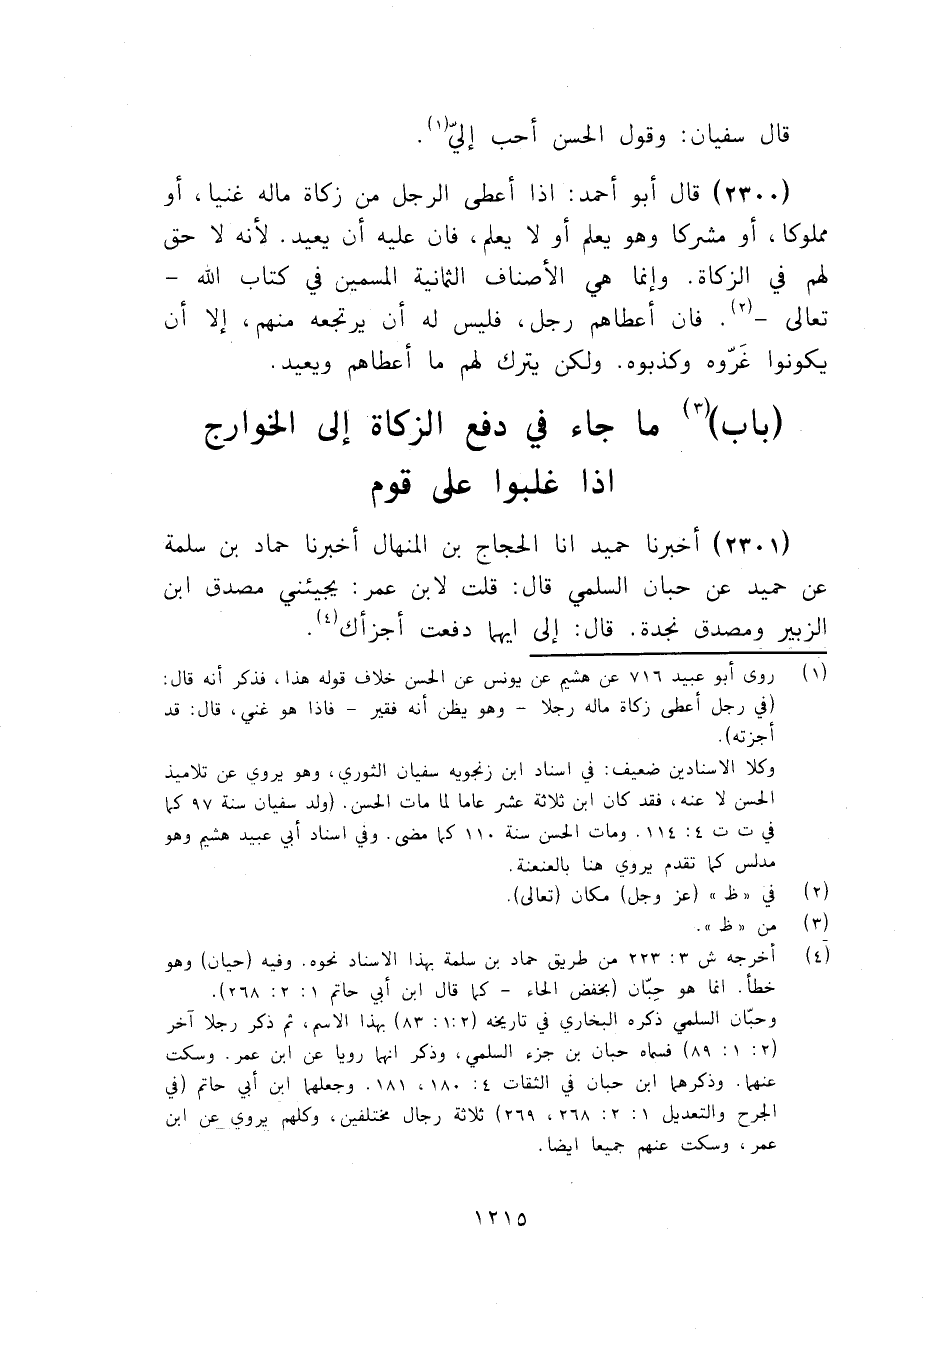 قال سفيان: وقول الحسن أحب إليّ(١).
(٢٣٠٠) قال أبو أحمد: اذا أعطى الرجل من زكاة ماله غنيا، أو
مملوكا، أو مشركا وهو يعلم أو لا يعلم، فان عليه أن يعيد. لأنه لا حق
لهم في الزكاة. وإنما هي الأصناف الثمانية المسمين في كتاب الله –
تعالى –(٢). فان أعطاهم رجل، فليس له أن يرتجعه منهم، إلا أن
يكونوا غَرّوه وكذبوه. ولكن يترك لهم ما أعطاهم ويعيد.
(باب)(٣) ما جاء في دفع الزكاة إلى الخوارج
اذا غلبوا على قوم
(٢٣٠١) أخبرنا حميد انا الحجاج بن المنهال أخبرنا حماد بن سلمة
عن حميد عن حبان السلمي قال: قلت لابن عمر: يجيئني مصدق ابن
الزبير ومصدق نجدة. قال: إلى ايهما دفعت أجزأك(٤).
(١) روى أبو عبيد ٧١٦ عن هشيم عن يونس عن الحسن خلاف قوله هذا، فذكر أنه قال:
(في رجل أعطى زكاة ماله رجلا – وهو يظن أنه فقير – فاذا هو غني، قال: قد
أجزته).
وكلا الاسنادين ضعيف: في اسناد ابن زنجويه سفيان الثوري، وهو يروي عن تلاميذ
الحسن لا عنه، فقد كان ابن ثلاثة عشر عاما لما مات الحسن. (ولد سفيان سنة ٩٧ كما
في ت ت ٤: ١١٤. ومات الحسن سنة ١١٠ كما مضى. وفي اسناد أبي عبيد هشيم وهو
مدلس كما تقدم يروي هنا بالعنعنة.
(٢) في « ظ » (عز وجل) مكان (تعالى).
(٣) من « ظ ».
(٤) أخرجه ش ٣: ٢٢٣ من طريق حماد بن سلمة بهذا الاسناد نحوه. وفيه (حيان) وهو
خطأ. انما هو حِبّان (بخفض الحاء – كما قال ابن أبي حاتم ١: ٢: ٢٦٨).
وحبّان السلمي ذكره البخاري في تاريخه (٢:١: ٨٣) بهذا الاسم، ثم ذكر رجلا آخر
(٢: ١: ٨٩) فسماه حبان بن جزء السلمي، وذكر انهما رويا عن ابن عمر. وسكت
عنهما. وذكرهما ابن حبان في الثقات ٤: ١٨٠، ١٨١. وجعلهما ابن أبي حاتم (في
الجرح والتعديل ١: ٢: ٢٦٨، ٢٦٩) ثلاثة رجال مختلفين، وكلهم يروي عن ابن
عمر، وسكت عنهم جميعا ايضا.
١٢١٥